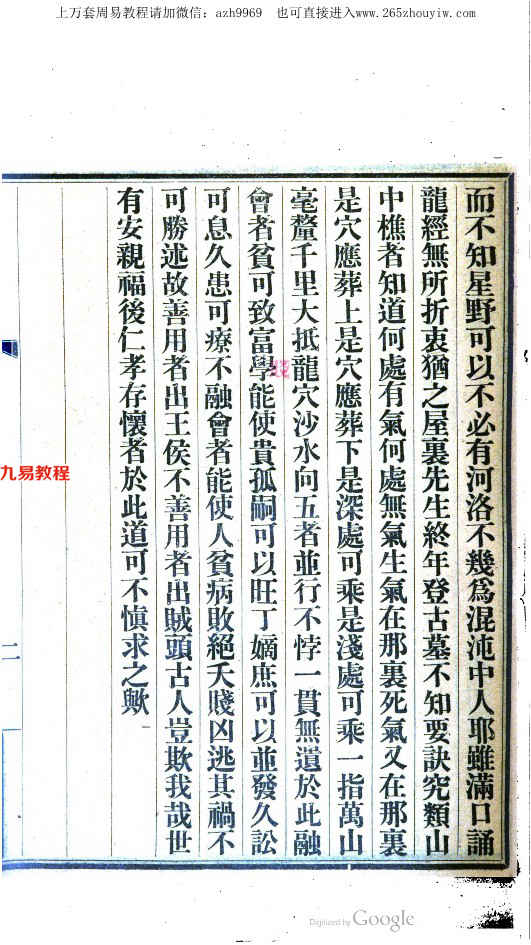 上万套周易教程请加微信：azh9969　也可直接进入www.265zhouyiw.com
而不知星野可以不必有河洛不幾爲混沌中人耶雖滿口誦
龍經無所折衷猶之屋裏先生終年登古墓不知要訣究類山
中樵者知道何處有氣何處無氣生氣在那裏死氣又在那裏
是穴應葬上是穴應葬下是深處可乘是淺處可乘一指萬山
毫釐千里大抵龍穴沙水向五者並行不悖一貫無遺於此融
會者貧可致富學能使貴孤嗣可以旺丁嫡庶可以並發久訟
可息久患可療不融會者能使人貧病敗絕夭賤凶逃其禍不
可勝述故善用者出王侯不善用者出賊頭古人豈欺我哉世
有安親福後仁孝存懷者於此道可不慎求之歟
九易教程
二
Digitized by Google